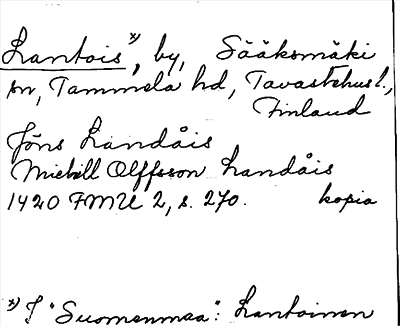 Lantois *), by, Sääksmäki
sn, Tammela hd, Tavastehus l.,
Finland
Jöns Landåis
Michill Olffsson Landåis
1420 FMU 2, s. 270. kopia
*) I "Suomenmaa": Lantoinen